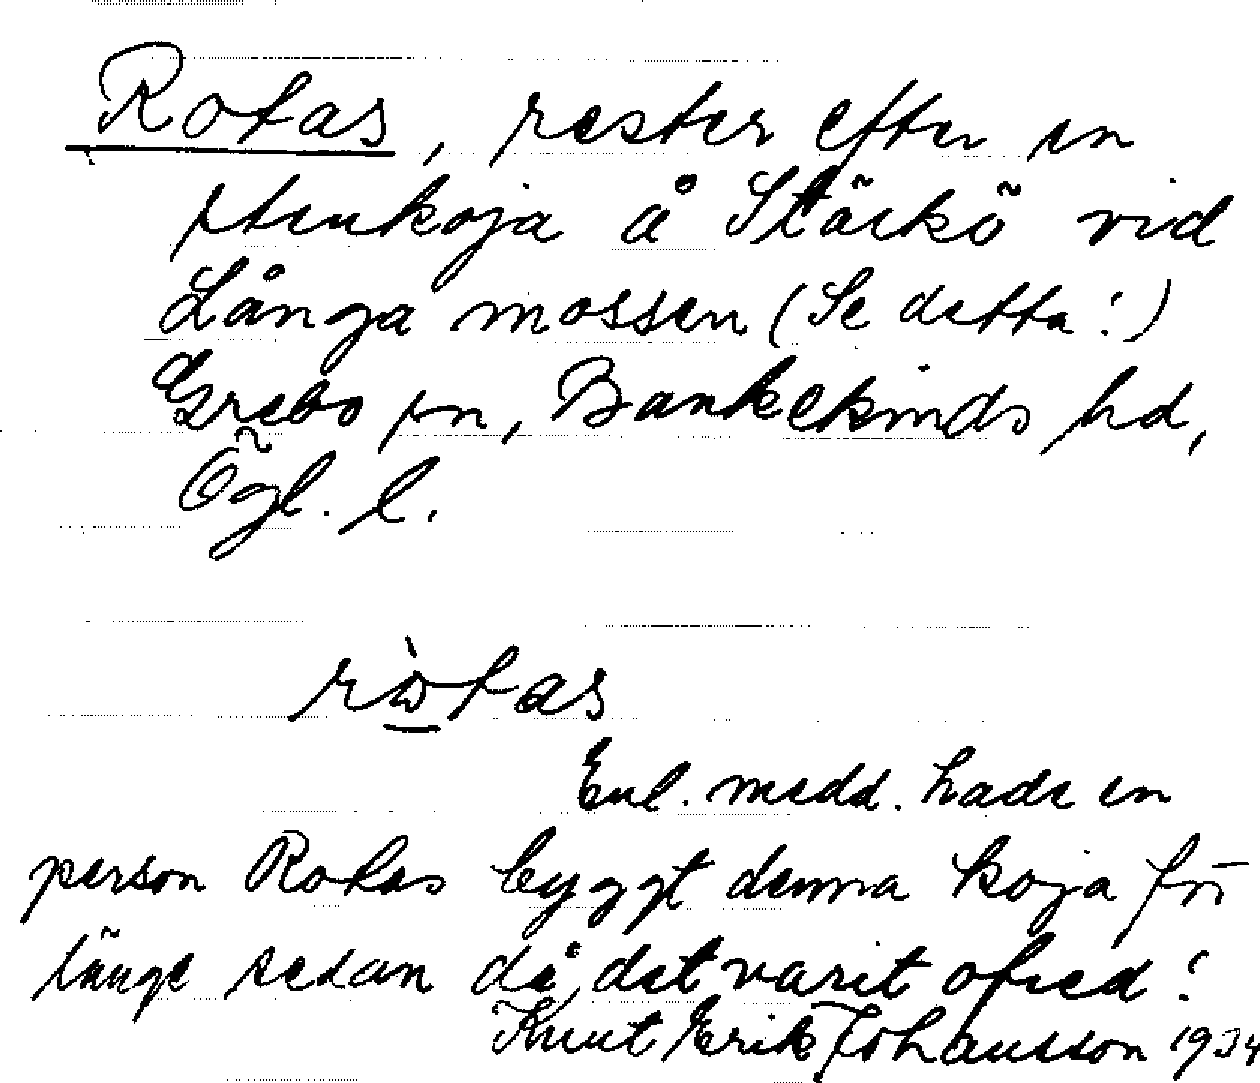 Rotas, rester efter en
stenkoja å Stärkö vid
Långa mossen (Se detta!)
Grebo sn, Bankekinds hd,
Ögl. l.
ròtas
Enl. medd. hade en
person Rotas byggt denna koja för
länge sedan då det varit ofred!
Knut Erik Johansson 1934